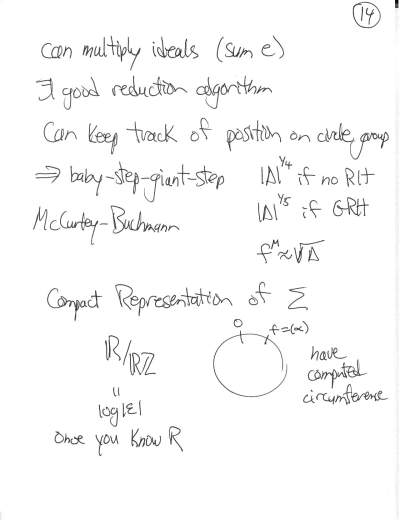 14
Can multiply ideals (sum e)
∃ good reduction algorithm
Can keep track of position on circle group
⇒ baby-step-giant-step |Δ|^{1/4} if no RH
McCurley-Buchmann |Δ|^{1/5} if GRH
≈√Δ
Compact Representation of Σ
ℝ/Rℤ
0 f=(α)
have
computed
circumference
"
log|Σ|
Once you know R